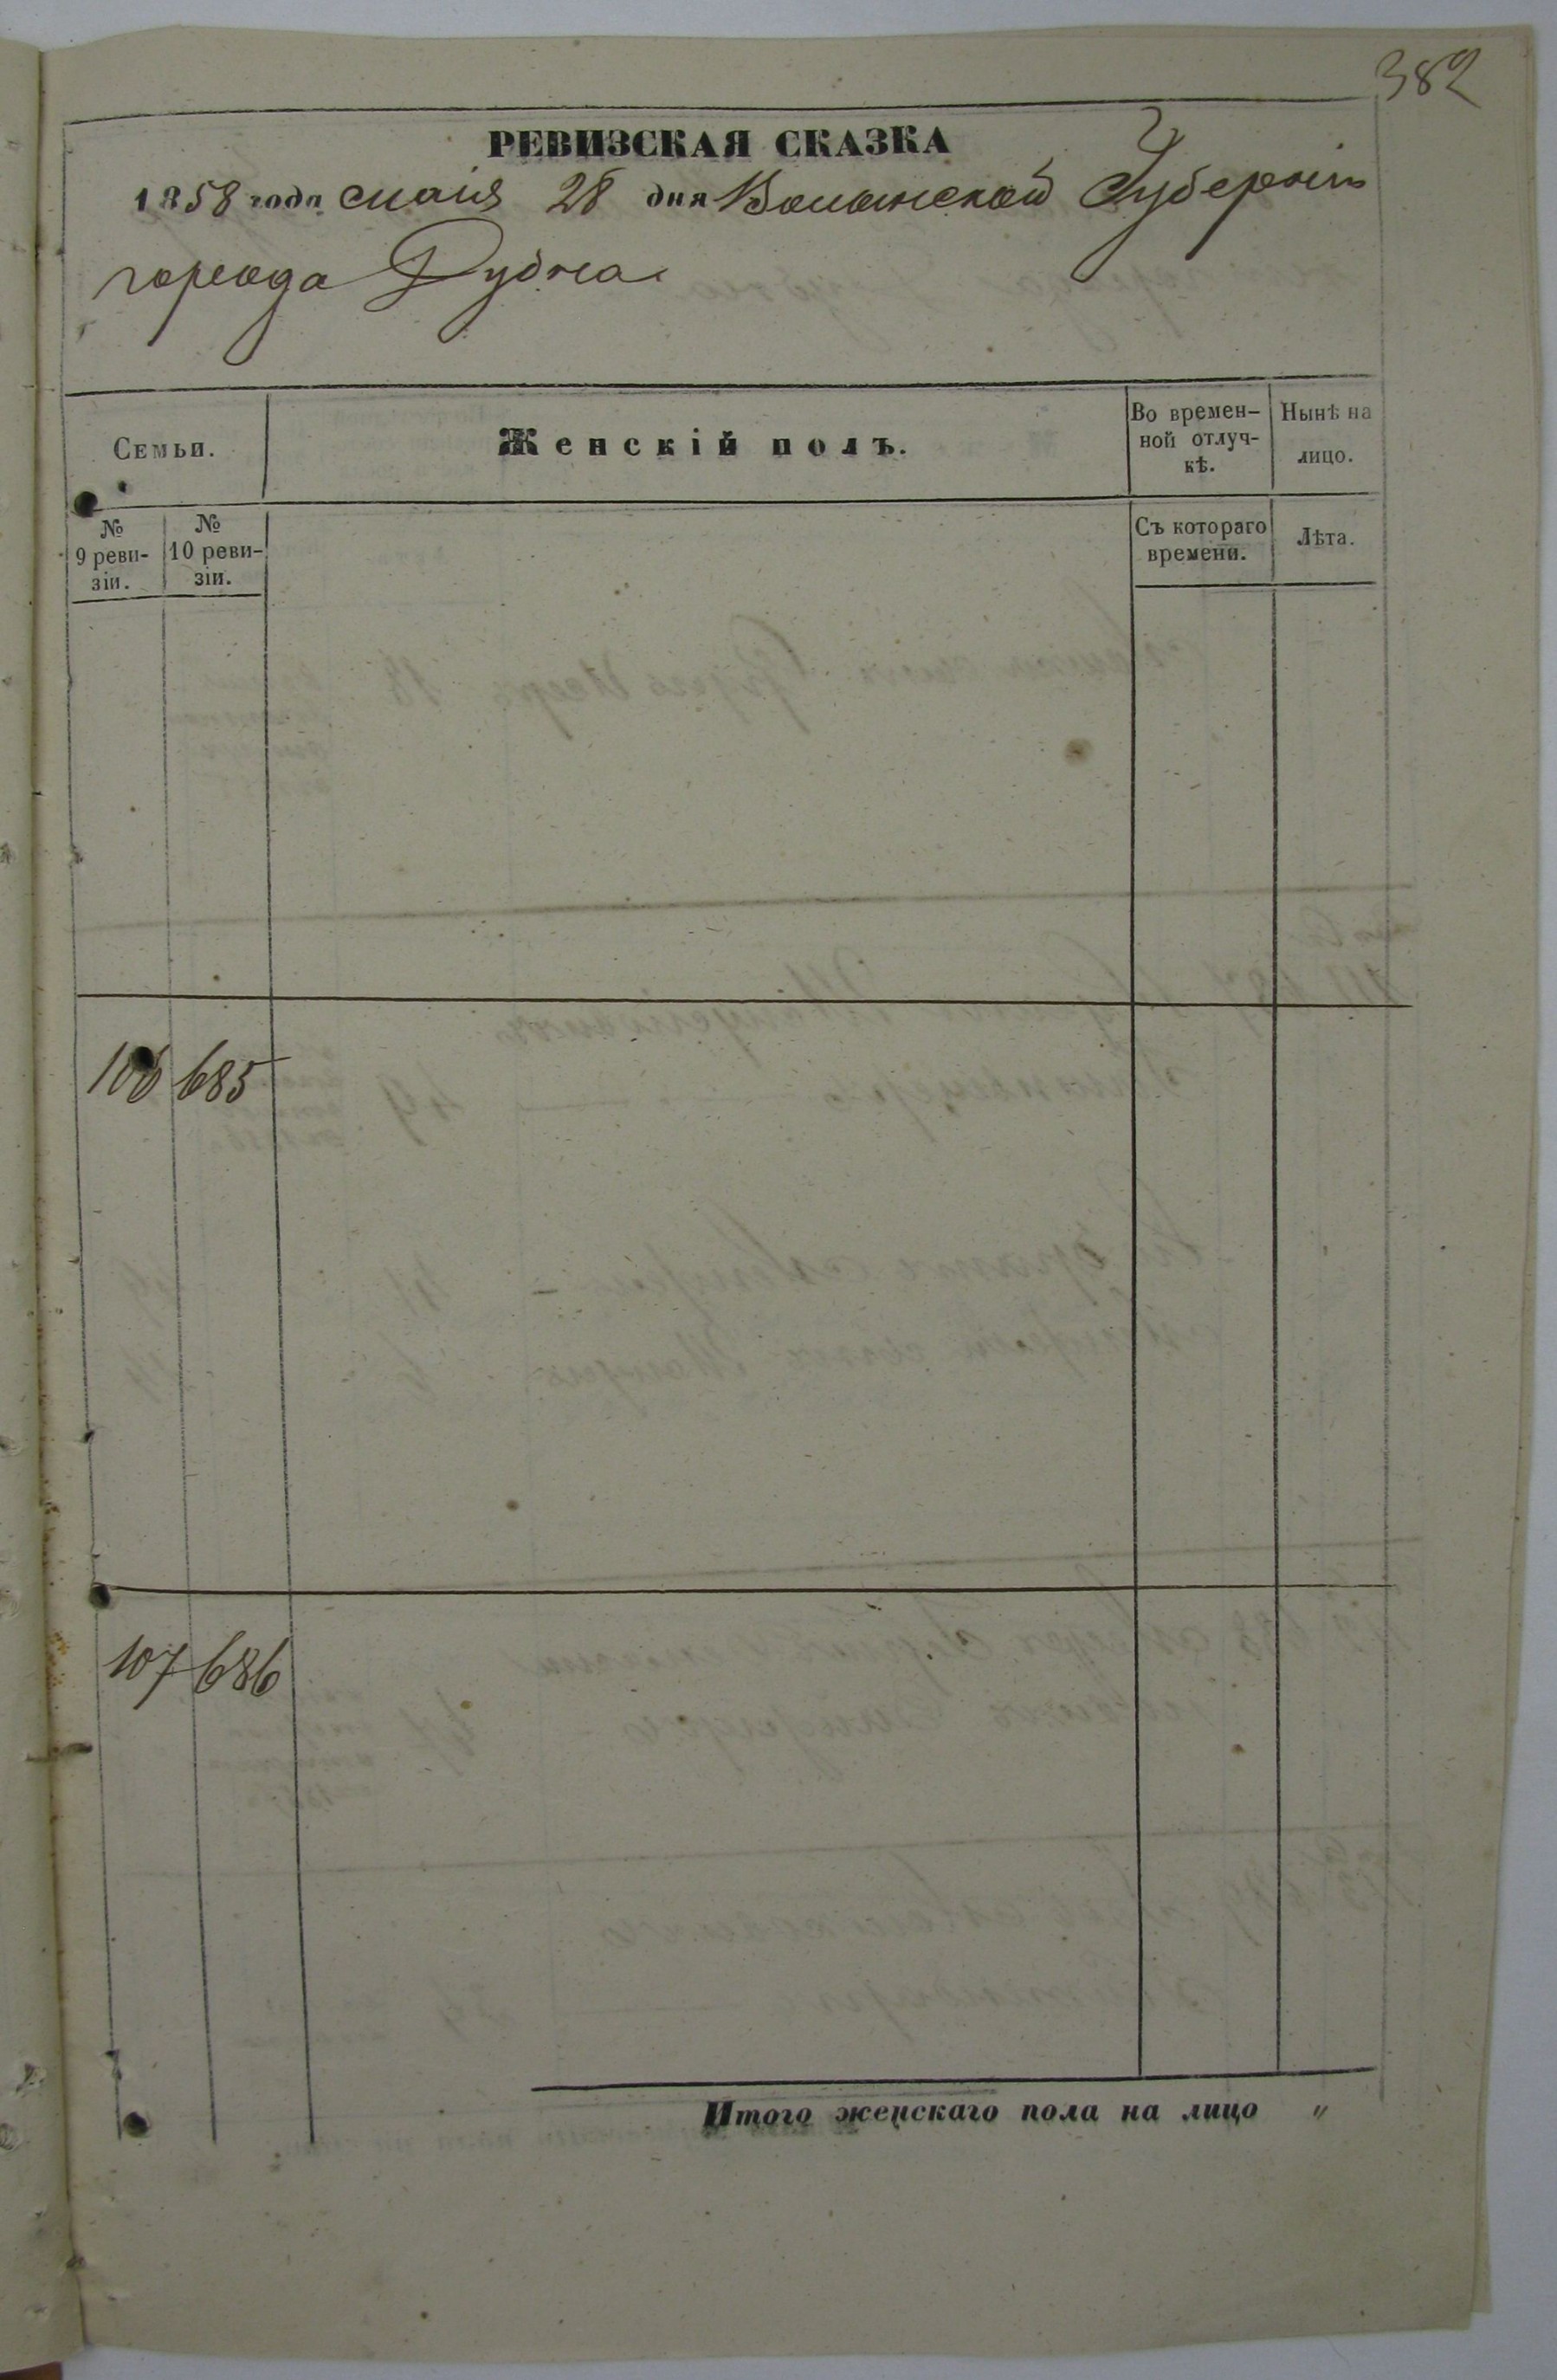 382
РЕВИЗСКАЯ СКАЗКА
1858 года маія 28 дня Волынской Губерніи
города Дубна
Семьи.
Женскій полъ.
Во времен-
ной отлуч-
кѣ.
Нынѣ на
лицо.
№
9 реви-
зіи.
№
10 реви-
зіи.
Съ котораго
времени.
Лѣта.
106 685
107 686
Итого женскаго пола на лицо "